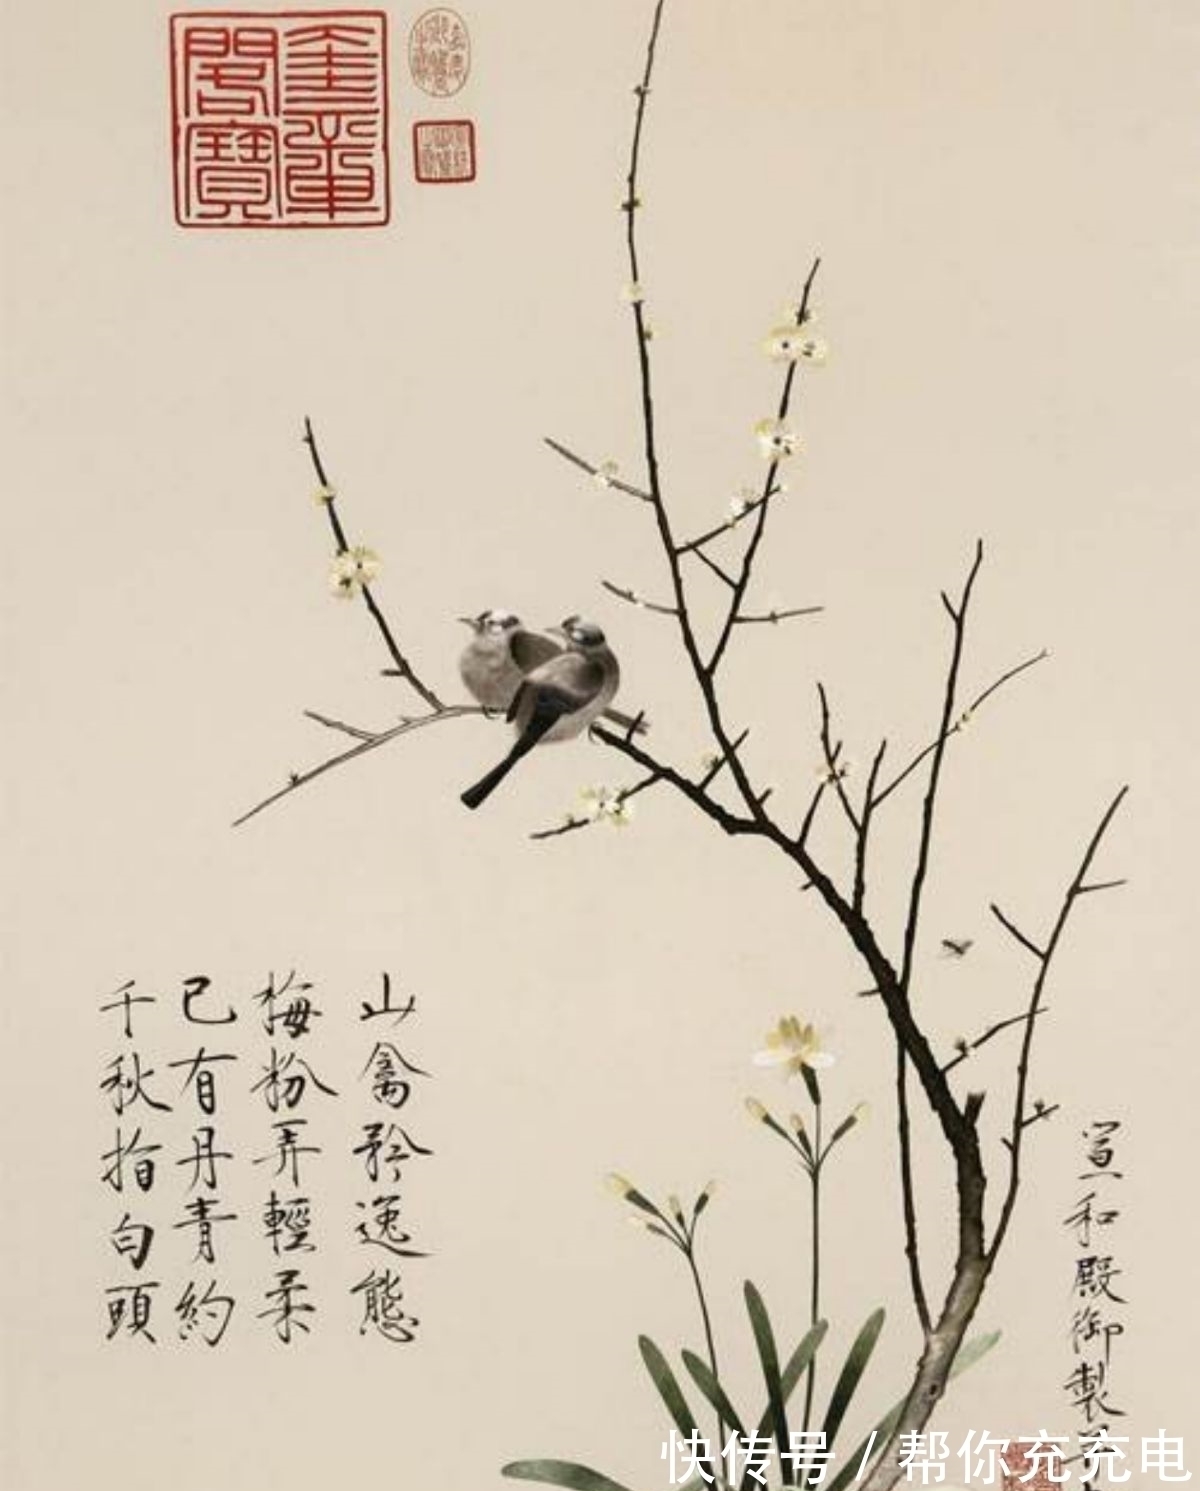 奎章
閣寶
山禽矜逸態
梅粉弄輕柔
已有丹青約
千秋指白頭
宣和殿御製
快传号 / 帮你充充电